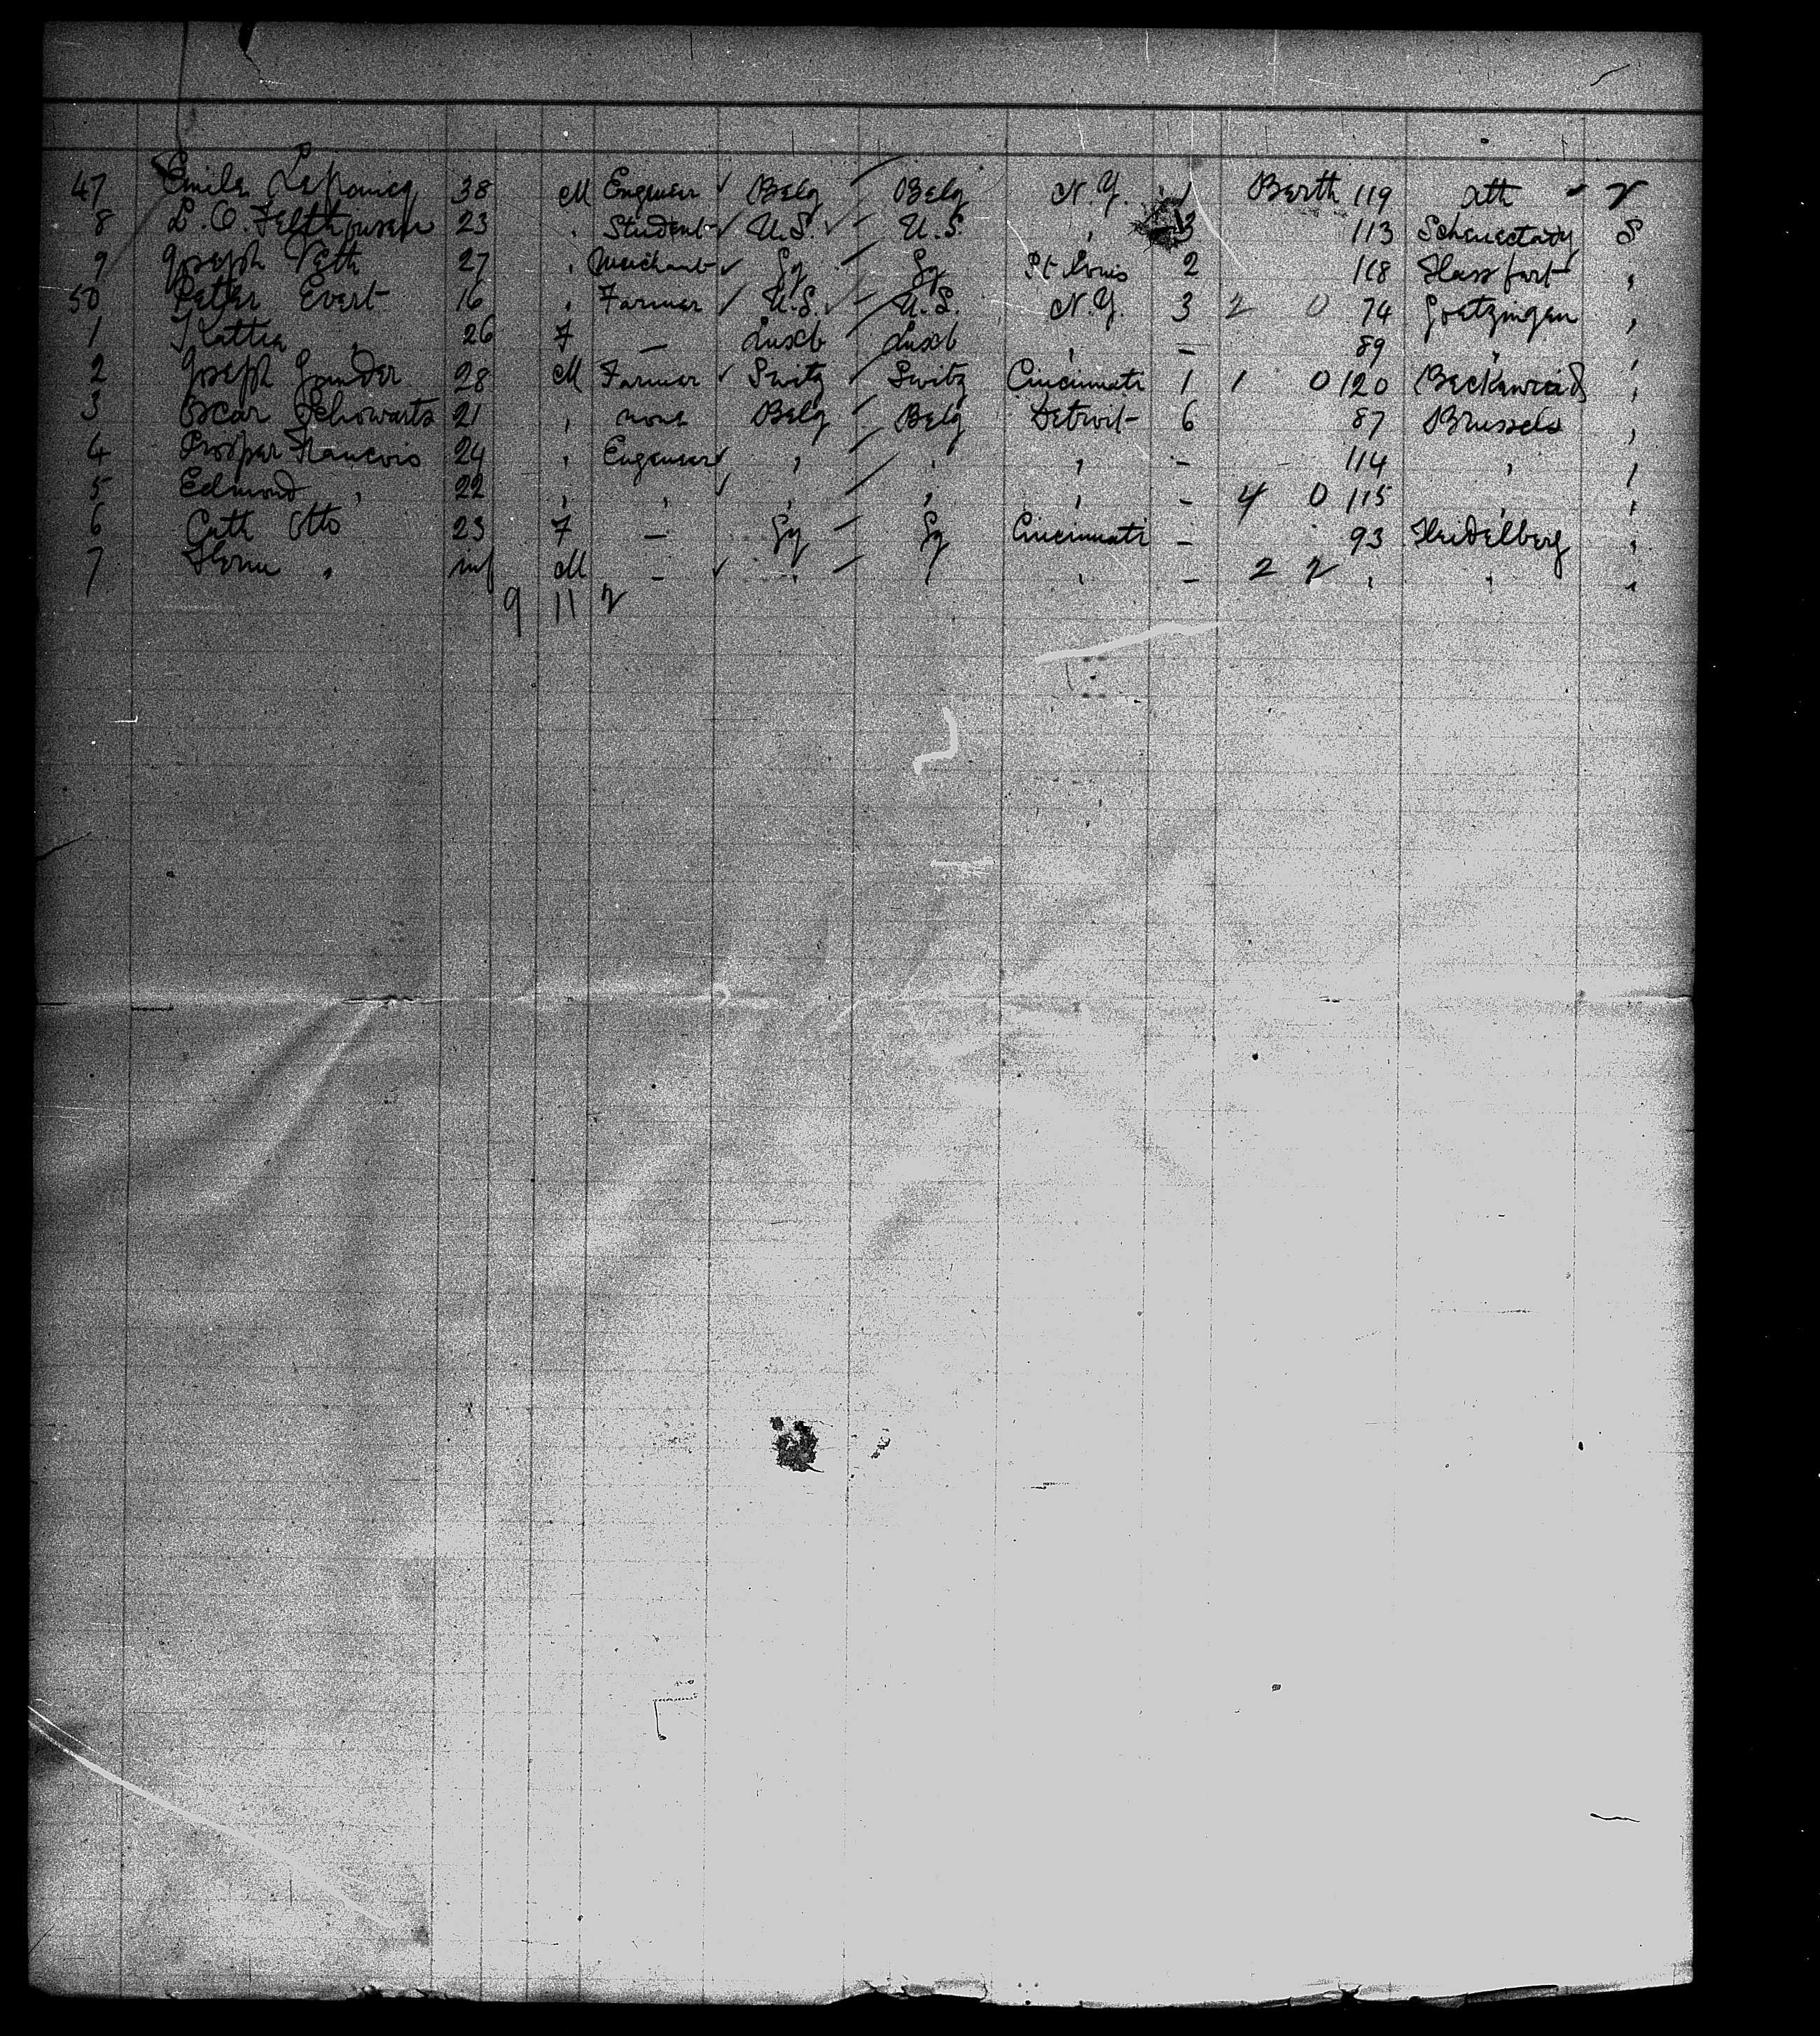 47 Emile 38 M Engeneer Belg Belg N.Y. 1 Berth 119 Ath
8 L. O. Felthousen 23 " Student U.S. U.S. " 3 113 Schenectady S
9 Joseph Veth 27 " Merchant Gy Gy St Louis 2 118 Hassfurt "
50 Petter Evert 16 " Farmer U.S. U.S. N.Y. 3 2 0 74 Goetzingen "
1 Kattie " 26 F — Luxb Luxb " - 89 " "
2 Joseph Gander 28 M Farmer Switz Switz Cincinnati 1 1 0 120 Beckenried "
3 Oscar Schowarts 21 " none Belg Belg Detroit 6 87 Brussels "
4 Prosper Francois 24 " Engeneer " " " - 114 " "
5 Edmond " 22 " " " " " - 4 0 115 " "
6 Cath Otto 23 F — Gy Gy Cincinnati - 93 Heidelberg "
7 Herm " inf M - " " " - 2 2 " " "
9 11 2